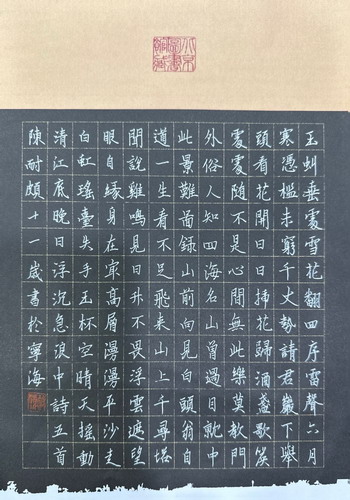 玉虯垂處雪花翻四序雷聲六月
寒憑檻未窮千丈勢請君巖下舉
頭看花開日日插花歸酒盞歌筵
處處隨不是心閒無此樂莫教門
外俗人知四海名山曾過目就中
此景難圖錄山前向見白頭翁自
道一生看不足飛來山上千尋塔
聞說雞鳴見日升不畏浮雲遮望
眼自緣身在最高層漫漫平沙走
白虹瑤臺失手玉杯空晴天搖動
清江底晚日浮沉急浪中詩五首
陳耐頗十一歲書於寧海